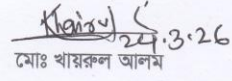 Khairul
24.3.26
মোঃ খায়রুল আলম